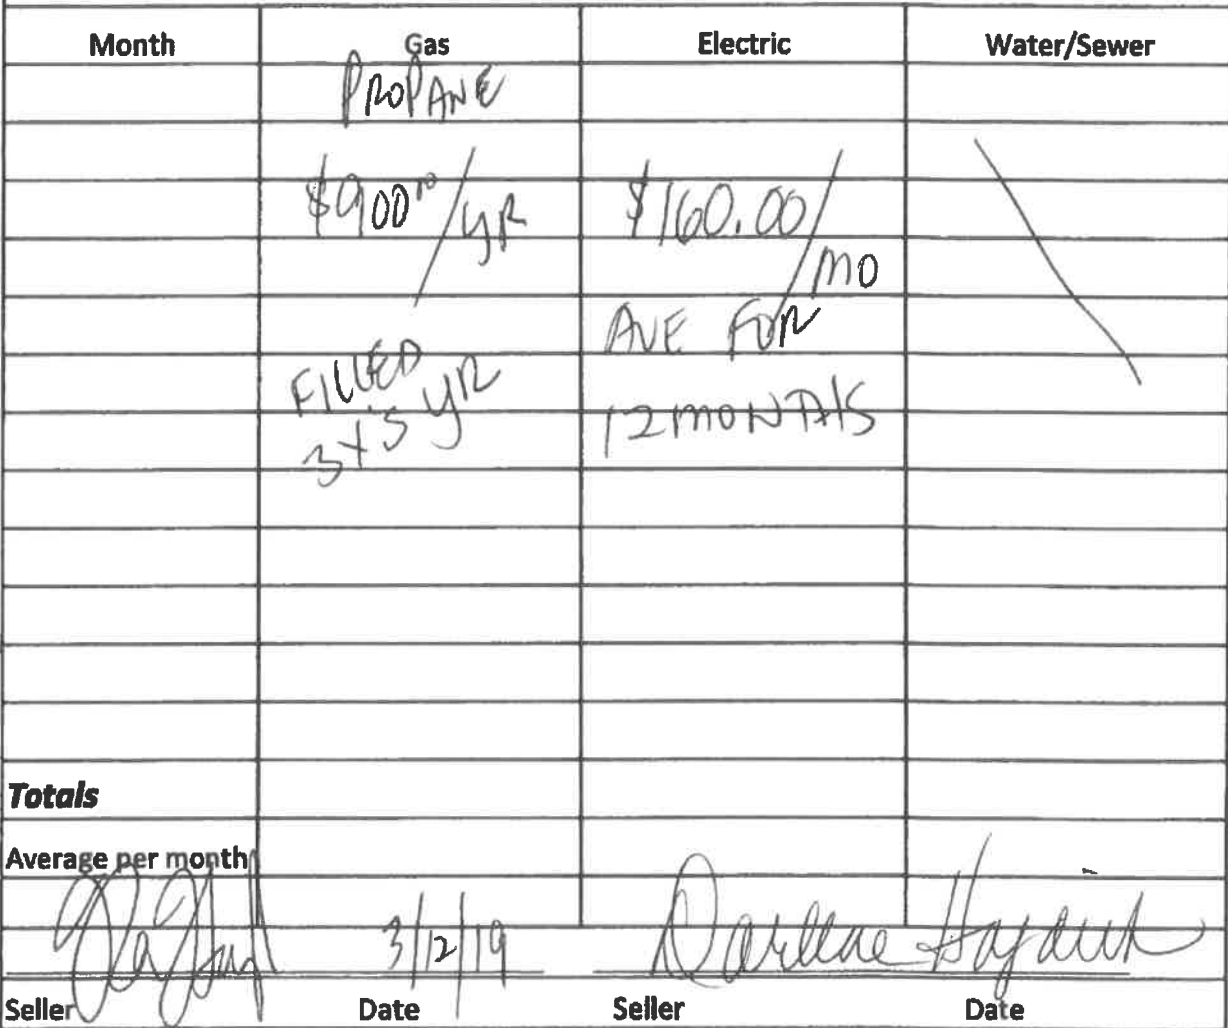 Month Gas Electric Water/Sewer
PROPANE
$900.00/YR $160.00/MO
AVE FOR
FILLED
3 X'S YR 12 MONTHS
Totals
Average per month
3/12/19 Darllne
Seller Date Seller Date